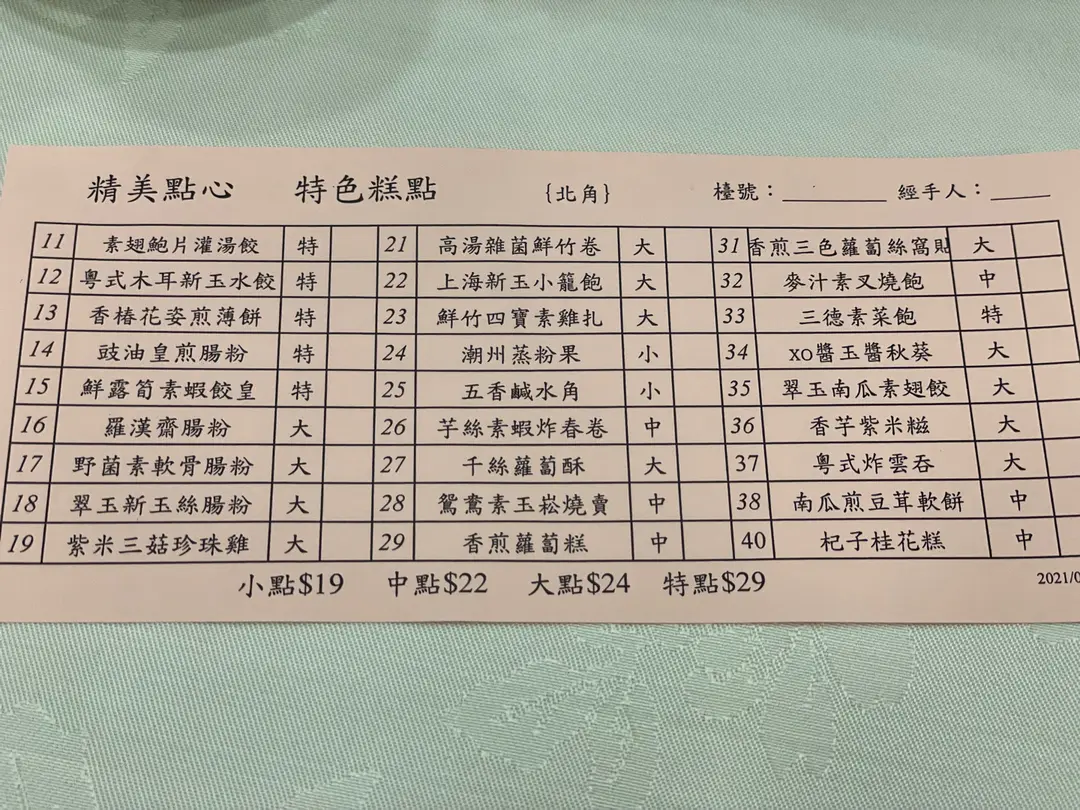 精美點心 特色糕點 {北角} 檯號：________ 經手人：_____
11 素翅鮑片灌湯餃 特 21 高湯雜菌鮮竹卷 大 31 香煎三色蘿蔔絲窩貼 大
12 粵式木耳新玉水餃 特 22 上海新玉小籠飽 大 32 麥汁素叉燒飽 中
13 香椿花姿煎薄餅 特 23 鮮竹四寶素雞扎 大 33 三德素菜飽 特
14 豉油皇煎腸粉 特 24 潮州蒸粉果 小 34 xo醬玉醬秋葵 大
15 鮮露筍素蝦餃皇 特 25 五香鹹水角 小 35 翠玉南瓜素翅餃 大
16 羅漢齋腸粉 大 26 芋絲素蝦炸春卷 中 36 香芋紫米糍 大
17 野菌素軟骨腸粉 大 27 千絲蘿蔔酥 大 37 粵式炸雲吞 大
18 翠玉新玉絲腸粉 大 28 鴛鴦素玉崧燒賣 中 38 南瓜煎豆茸軟餅 中
19 紫米三菇珍珠雞 大 29 香煎蘿蔔糕 中 40 杞子桂花糕 中
小點$19 中點$22 大點$24 特點$29
2021/0